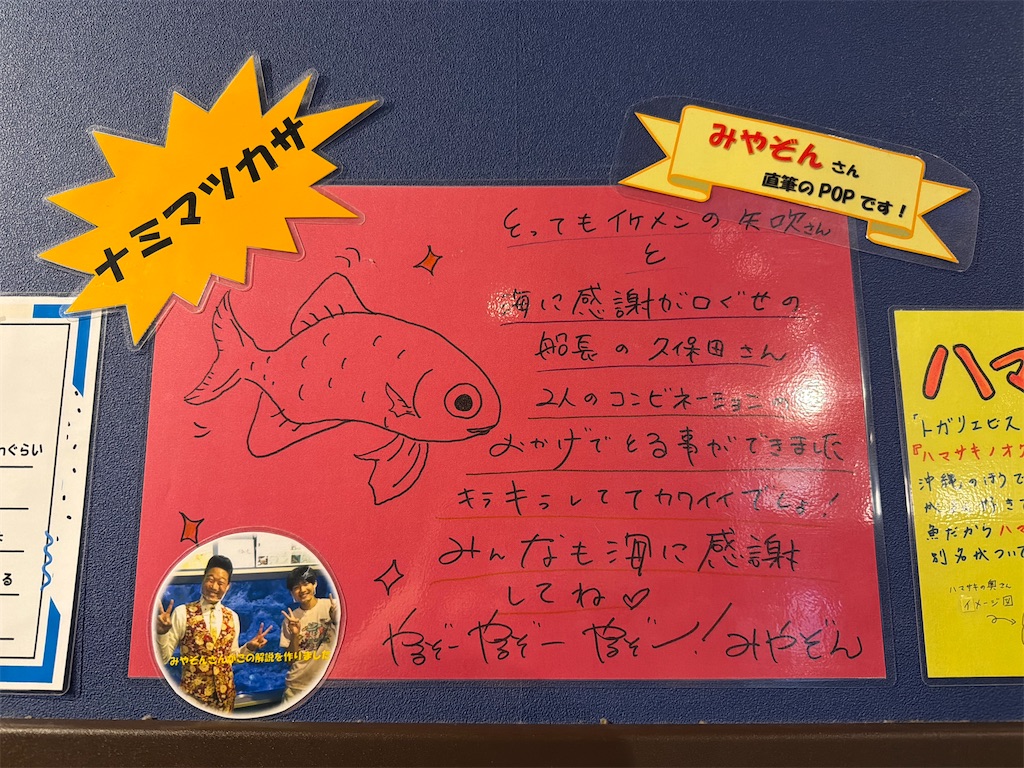 ナミマツカサ
みやぞんさん
直筆のPOPです!
とってもイケメンの矢吹さん
と
海に感謝が口ぐせの
船長の久保田さん
2人のコンビネーションの
おかげでとる事ができました
キラキラしててカワイイでしょ!
みんなも海に感謝
してね♡
やぞー やぞー やぞー!! みやぞん
みやぞんさんがこの解説を作りました
ぐらい
る
ハマ
『トガリエビス
『ハマサキノオク
沖縄
魚だからハマ
別名がついて
ハマサキの奥さん
イメージ図